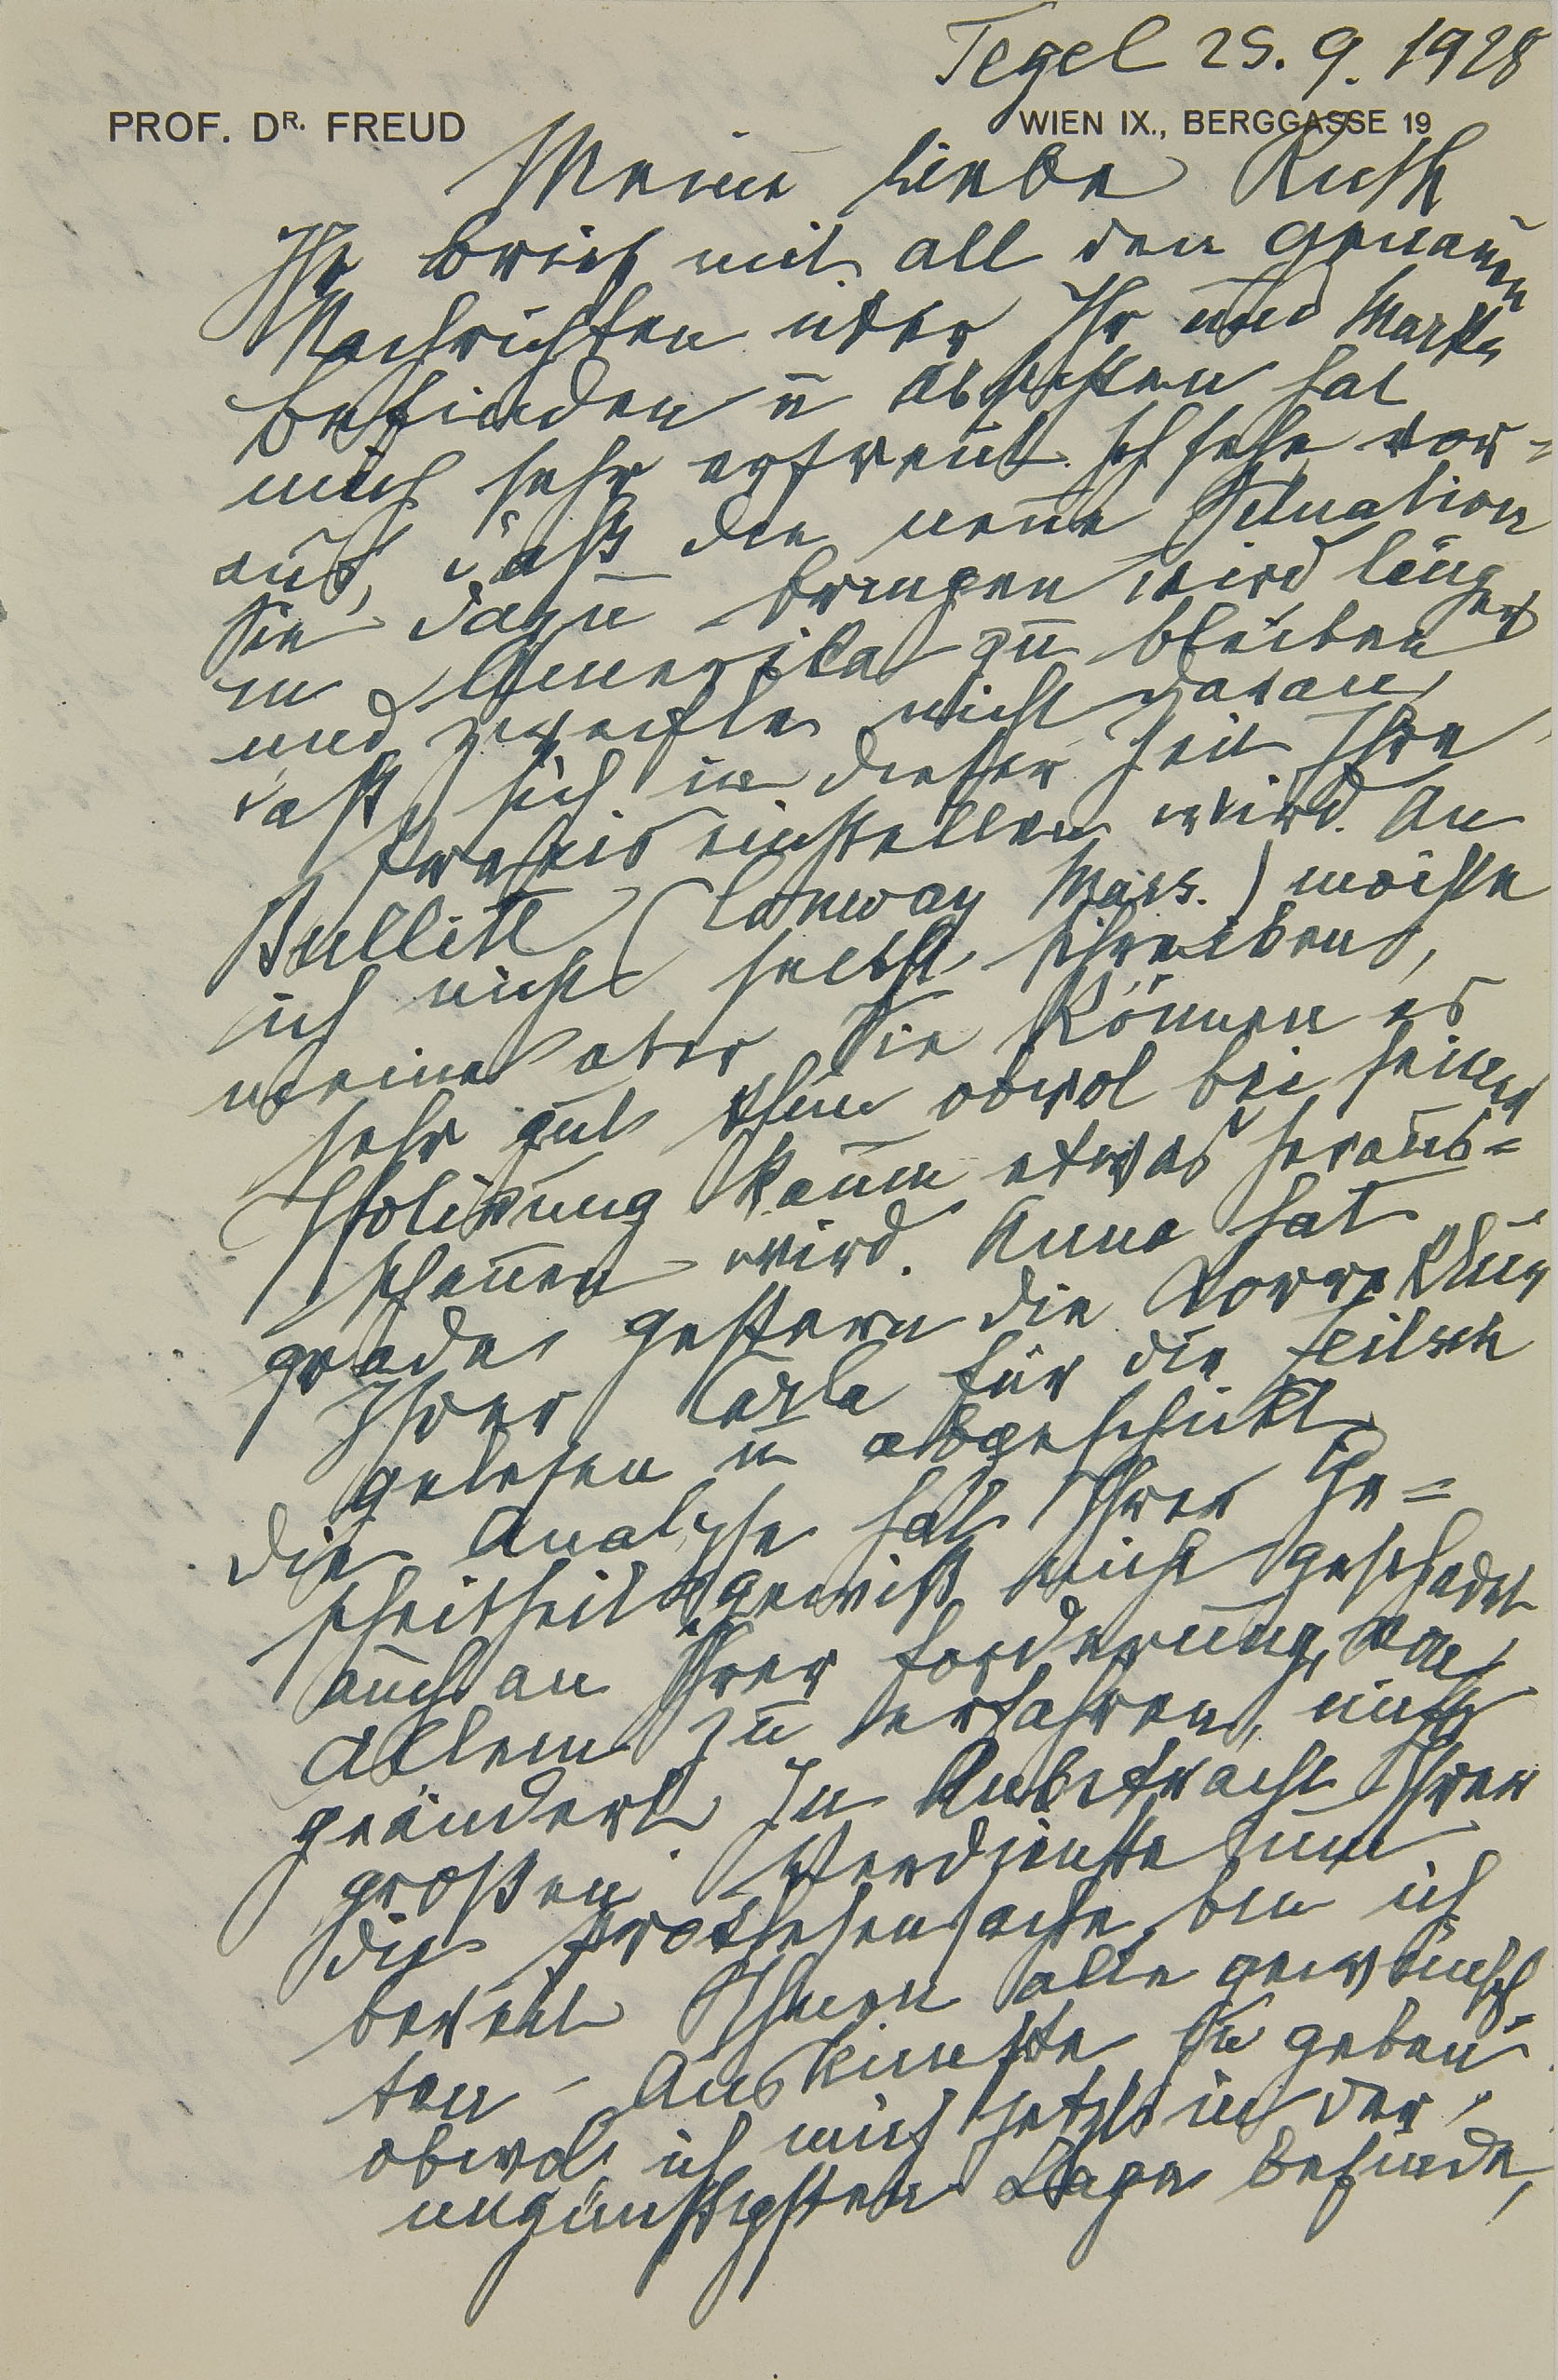 Tegel 25. 9. 1928
PROF. DR. FREUD
WIEN IX., BERGGASSE 19
Meine liebe Ruth
Ihr Brief mit all den genauen
Nachrichten über Ihr und Marks
Befinden u Absichten hat
mich sehr erfreut. Ich sehe vor=
aus, daß die neue Situation
Sie dazu bringen wird länger
in Amerika zu bleiben
und zweifle nicht daran,
daß sich in dieser Zeit Ihre
Praxis einstellen wird. An
Bullitt (Conway Mass.) möchte
ich nicht selbst schreiben,
meine aber Sie können es
sehr gut thun obwol bei seiner
Isolirung kaum etwas heraus=
schauen wird. Anna hat
grade gestern die Korrektur
Ihrer für die Zeitsch
gelesen u abgeschickt.
Die Analyse hat Ihrer Ge=
scheitheit gewiß nicht geschadet
auch an Ihrer Forderung, von
Allem zu erfahren, nichts
geändert. In Anbetracht Ihrer
großen Verdienste um
die Prothesensache bin ich
bereit Ihnen alle gewünsch=
ten Auskünfte zu geben
obwol ich mich jetzt in der
ungünstigsten Lage befinde,